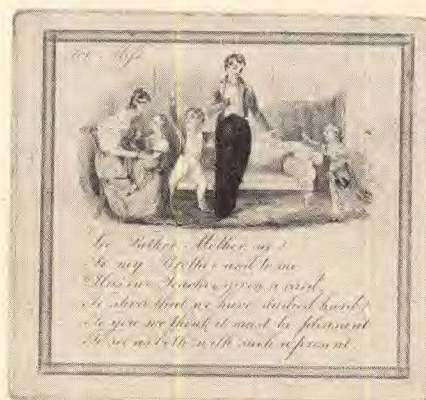 See Father, Mother, see!
To my Brother and to me
Has our Teacher given a card,
To show that we have studied hard;
To you we think it must be pleasant
To see us both with such a present.